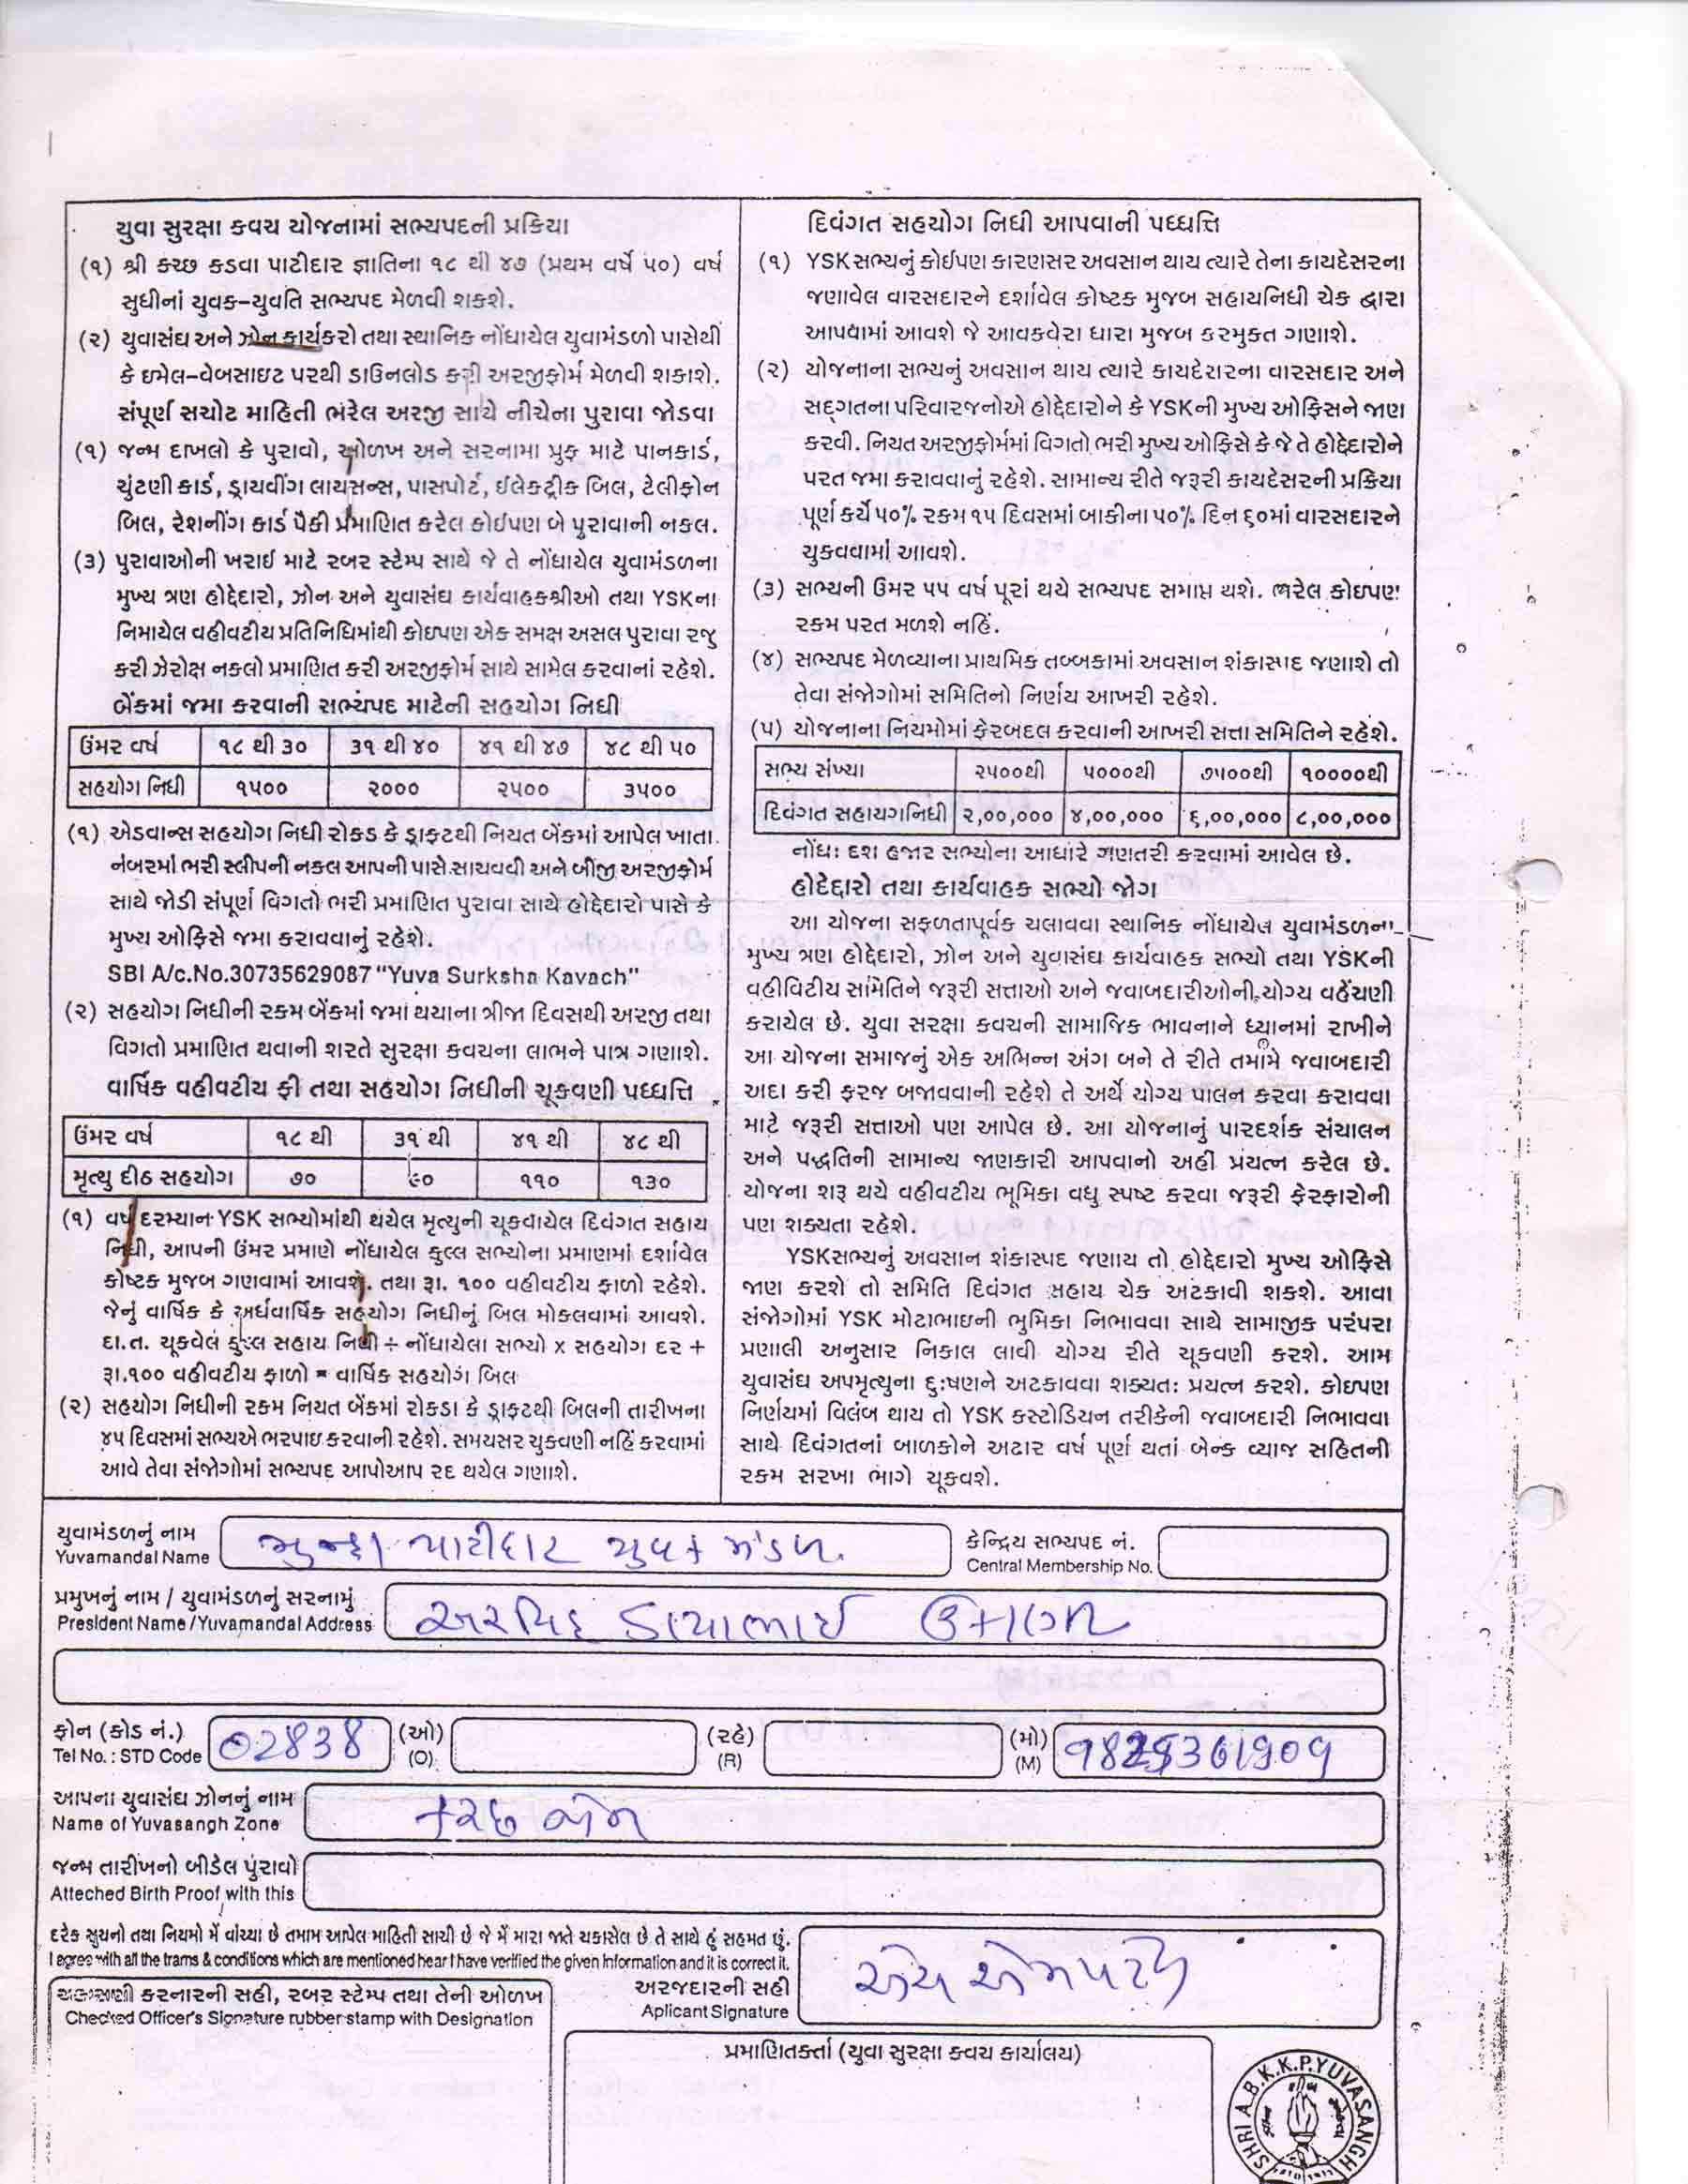 યુવા સુરક્ષા કવચ યોજનામાં સભ્યપદની પ્રક્રિયા
(૧) શ્રી કચ્છ કડવા પાટીદાર જ્ઞાતિના ૧૮ થી ૪૭ (પ્રથમ વર્ષે ૫૦) વર્ષ
સુધીનાં યુવક-યુવતિ સભ્યપદ મેળવી શકશે.
(૨) યુવાસંઘ અને ઝોન કાર્યકરો તથા સ્થાનિક નોંધાયેલ યુવામંડળો પાસેથી
કે ઇમેલ-વેબસાઇટ પરથી ડાઉનલોડ કરી અરજીફોર્મ મેળવી શકાશે.
સંપૂર્ણ સચોટ માહિતી ભરેલ અરજી સાથે નીચેના પુરાવા જોડવા
(૧) જન્મ દાખલો કે પુરાવો, ઓળખ અને સરનામા પ્રુફ માટે પાનકાર્ડ,
ચુંટણી કાર્ડ, ડ્રાયવીંગ લાયસન્સ, પાસપોર્ટ, ઈલેક્ટ્રીક બિલ, ટેલીફોન
બિલ, રેશનીંગ કાર્ડ પૈકી પ્રમાણિત કરેલ કોઈપણ બે પુરાવાની નકલ.
(૩) પુરાવાઓની ખરાઈ માટે રબર સ્ટેમ્પ સાથે જે તે નોંધાયેલ યુવામંડળના
મુખ્ય ત્રણ હોદ્દેદારો, ઝોન અને યુવાસંઘ કાર્યવાહકશ્રીઓ તથા YSKના
નિમાયેલ વહીવટીય પ્રતિનિધિમાંથી કોઇપણ એક સમક્ષ અસલ પુરાવા રજુ
કરી ઝેરોક્ષ નકલો પ્રમાણિત કરી અરજીફોર્મ સાથે સામેલ કરવાનાં રહેશે.
બેંકમાં જમા કરવાની સભ્યપદ માટેની સહયોગ નિધી
ઉંમર વર્ષ ૧૮ થી ૩૦ ૩૧ થી ૪૦ ૪૧ થી ૪૭ ૪૮ થી ૫૦
સહયોગ નિધી ૧૫૦૦ ૨૦૦૦ ૨૫૦૦ ૩૫૦૦
(૧) એડવાન્સ સહયોગ નિધી રોકડ કે ડ્રાફ્ટથી નિયત બેંકમાં આપેલ ખાતા
નંબરમાં ભરી સ્લીપની નકલ આપની પાસે સાચવવી અને બીજી અરજીફોર્મ
સાથે જોડી સંપૂર્ણ વિગતો ભરી પ્રમાણિત પુરાવા સાથે હોદ્દેદારો પાસે કે
મુખ્ય ઓફિસે જમા કરાવવાનું રહેશે.
SBI A/c.No.30735629087 "Yuva Surksha Kavach"
(૨) સહયોગ નિધીની રકમ બેંકમાં જમાં થયાના ત્રીજા દિવસથી અરજી તથા
વિગતો પ્રમાણિત થવાની શરતે સુરક્ષા કવચના લાભને પાત્ર ગણાશે.
વાર્ષિક વહીવટીય ફી તથા સહયોગ નિધીની ચૂકવણી પધ્ધતિ
ઉંમર વર્ષ ૧૮ થી ૩૧ થી ૪૧ થી ૪૮ થી
મૃત્યુ દીઠ સહયોગ ૭૦ ૯૦ ૧૧૦ ૧૩૦
(૧) વર્ષ દરમ્યાન YSK સભ્યોમાંથી થયેલ મૃત્યુની ચૂકવાયેલ દિવંગત સહાય
નિધી, આપની ઉંમર પ્રમાણે નોંધાયેલ કુલ્લ સભ્યોના પ્રમાણમાં દર્શાવેલ
કોષ્ટક મુજબ ગણવામાં આવશે. તથા રૂા. ૧૦૦ વહીવટીય ફાળો રહેશે.
જેનું વાર્ષિક કે અર્ધવાર્ષિક સહયોગ નિધીનું બિલ મોકલવામાં આવશે.
દા.ત. ચૂકવેલ કુલ્લ સહાય નિધી ÷ નોંધાયેલા સભ્યો x સહયોગ દર +
રૂા.૧૦૦ વહીવટીય ફાળો = વાર્ષિક સહયોગ બિલ
(૨) સહયોગ નિધીની રકમ નિયત બેંકમાં રોકડા કે ડ્રાફ્ટથી બિલની તારીખના
૪૫ દિવસમાં સભ્યએ ભરપાઇ કરવાની રહેશે. સમયસર ચુકવણી નહિં કરવામાં
આવે તેવા સંજોગોમાં સભ્યપદ આપોઆપ રદ થયેલ ગણાશે.
દિવંગત સહયોગ નિધી આપવાની પધ્ધત્તિ
(૧) YSKસભ્યનું કોઈપણ કારણસર અવસાન થાય ત્યારે તેના કાયદેસરના
જણાવેલ વારસદારને દર્શાવેલ કોષ્ટક મુજબ સહાયનિધી ચેક દ્વારા
આપવામાં આવશે જે આવકવેરા ધારા મુજબ કરમુક્ત ગણાશે.
(૨) યોજનાના સભ્યનું અવસાન થાય ત્યારે કાયદેસરના વારસદાર અને
સદ્ગતના પરિવારજનોએ હોદ્દેદારોને કે YSKની મુખ્ય ઓફિસને જાણ
કરવી. નિયત અરજીફોર્મમાં વિગતો ભરી મુખ્ય ઓફિસે કે જે તે હોદ્દેદારોને
પરત જમા કરાવવાનું રહેશે. સામાન્ય રીતે જરૂરી કાયદેસરની પ્રક્રિયા
પૂર્ણ કર્યે ૫૦% રકમ ૧૫ દિવસમાં બાકીના ૫૦% દિન ૬૦માં વારસદારને
ચુકવવામાં આવશે.
(૩) સભ્યની ઉંમર ૫૫ વર્ષ પૂરાં થયે સભ્યપદ સમાપ્ત થશે. ભરેલ કોઇપણ
રકમ પરત મળશે નહિં.
(૪) સભ્યપદ મેળવ્યાના પ્રાથમિક તબ્બકામાં અવસાન શંકાસ્પદ જણાશે તો
તેવા સંજોગોમાં સમિતિનો નિર્ણય આખરી રહેશે.
(૫) યોજનાના નિયમોમાં ફેરબદલ કરવાની આખરી સત્તા સમિતિને રહેશે.
સભ્ય સંખ્યા ૨૫૦૦થી ૫૦૦૦થી ૭૫૦૦થી ૧૦૦૦૦થી
દિવંગત સહાયગનિધી ૨,૦૦,૦૦૦ ૪,૦૦,૦૦૦ ૬,૦૦,૦૦૦ ૮,૦૦,૦૦૦
નોંધ: દશ હજાર સભ્યોના આધારે ગણતરી કરવામાં આવેલ છે.
હોદેદ્દારો તથા કાર્યવાહક સભ્યો જોગ
આ યોજના સફળતાપૂર્વક ચલાવવા સ્થાનિક નોંધાયેલ યુવામંડળના
મુખ્ય ત્રણ હોદ્દેદારો, ઝોન અને યુવાસંઘ કાર્યવાહક સભ્યો તથા YSKની
વહીવિટીય સમિતિને જરૂરી સત્તાઓ અને જવાબદારીઓની યોગ્ય વહેંચણી
કરાયેલ છે. યુવા સરક્ષા કવચની સામાજિક ભાવનાને ધ્યાનમાં રાખીને
આ યોજના સમાજનું એક અભિન્ન અંગ બને તે રીતે તમામે જવાબદારી
અદા કરી ફરજ બજાવવાની રહેશે તે અર્થે યોગ્ય પાલન કરવા કરાવવા
માટે જરૂરી સત્તાઓ પણ આપેલ છે. આ યોજનાનું પારદર્શક સંચાલન
અને પદ્ધતિની સામાન્ય જાણકારી આપવાનો અહીં પ્રયત્ન કરેલ છે.
યોજના શરૂ થયે વહીવટીય ભૂમિકા વધુ સ્પષ્ટ કરવા જરૂરી ફેરફારોની
પણ શક્યતા રહેશે.
YSKસભ્યનું અવસાન શંકાસ્પદ જણાય તો હોદ્દેદારો મુખ્ય ઓફિસે
જાણ કરશે તો સમિતિ દિવંગત સહાય ચેક અટકાવી શકશે. આવા
સંજોગોમાં YSK મોટાભાઇની ભુમિકા નિભાવવા સાથે સામાજીક પરંપરા
પ્રણાલી અનુસાર નિકાલ લાવી યોગ્ય રીતે ચૂકવણી કરશે. આમ
યુવાસંઘ અપમૃત્યુના દુઃષણને અટકાવવા શક્યત: પ્રયત્ન કરશે. કોઇપણ
નિર્ણયમાં વિલંબ થાય તો YSK કસ્ટોડિયન તરીકેની જવાબદારી નિભાવવા
સાથે દિવંગતનાં બાળકોને અઢાર વર્ષ પૂર્ણ થતાં બેન્ક વ્યાજ સહિતની
રકમ સરખા ભાગે ચૂકવશે.
યુવામંડળનું નામ
Yuvamandal Name
પાટીદાર યુવક મંડળ.
કેન્દ્રિય સભ્યપદ નં.
Central Membership No.
પ્રમુખનું નામ / યુવામંડળનું સરનામું
President Name /Yuvamandal Address
અરવિંદ ડાયાભાઈ
ફોન (કોડ નં.)
Tel No. : STD Code
02838
(ઓ)
(O)
(રહે)
(R)
(મો)
(M)
આપના યુવાસંઘ ઝોનનું નામ
Name of Yuvasangh Zone
કચ્છ ઝોન
જન્મ તારીખનો બીડેલ પુરાવો
Atteched Birth Proof with this
દરેક સુચનો તથા નિયમો મેં વાંચ્યા છે તમામ આપેલ માહિતી સાચી છે જે મેં મારા જાતે ચકાસેલ છે તે સાથે હું સહમત છું.
I agree with all the trams & conditions which are mentioned hear I have verified the given Information and it is correct it.
અરજદારની સહી
Aplicant Signature
એચ એમ પટેલ
ચકાસણી કરનારની સહી, રબર સ્ટેમ્પ તથા તેની ઓળખ
Checked Officer's Signature rubber stamp with Designation
પ્રમાણિતકર્તા (યુવા સુરક્ષા કવચ કાર્યાલય)
SHRI A.B.K.K.P.YUVASANGH